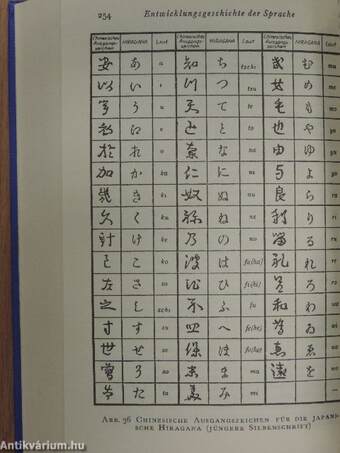 254 Entwicklungsgeschichte der Sprache
Chinesisches Ausgangszeichen HIRAGANA Laut Chinesisches Ausgangszeichen HIRAGANA Laut Chinesisches Ausgangszeichen HIRAGANA Laut
安 あ a 知 ち tschi 武 む mu
以 い i 川 つ tsu め me
う u 天 て te 毛 も mo
え e と to 也 や ya
於 お o 奈 な na 由 ゆ yu
加 か ka 仁 に ni 与 よ yo
幾 き ki 奴 ぬ nu 良 ら ra
久 く ku ね ne 利 り ri
計 け ke 乃 の no 留 る ru
己 こ ko 波 は fa(ha) 礼 れ re
左 さ sa 比 ひ fi(hi) ろ ro
之 し schi 不 ふ fu 和 わ wa
寸 す su へ fe(he) ゐ wi
世 せ se 保 ほ fo(ho) ゑ we
曽 そ so 末 ま ma 遠 を wo
た ta 美 み mi
Abb. 36 Chinesische Ausgangszeichen für die japani-
sche Hiragana (jüngere Silbenschrift)
Antikvárium.hu